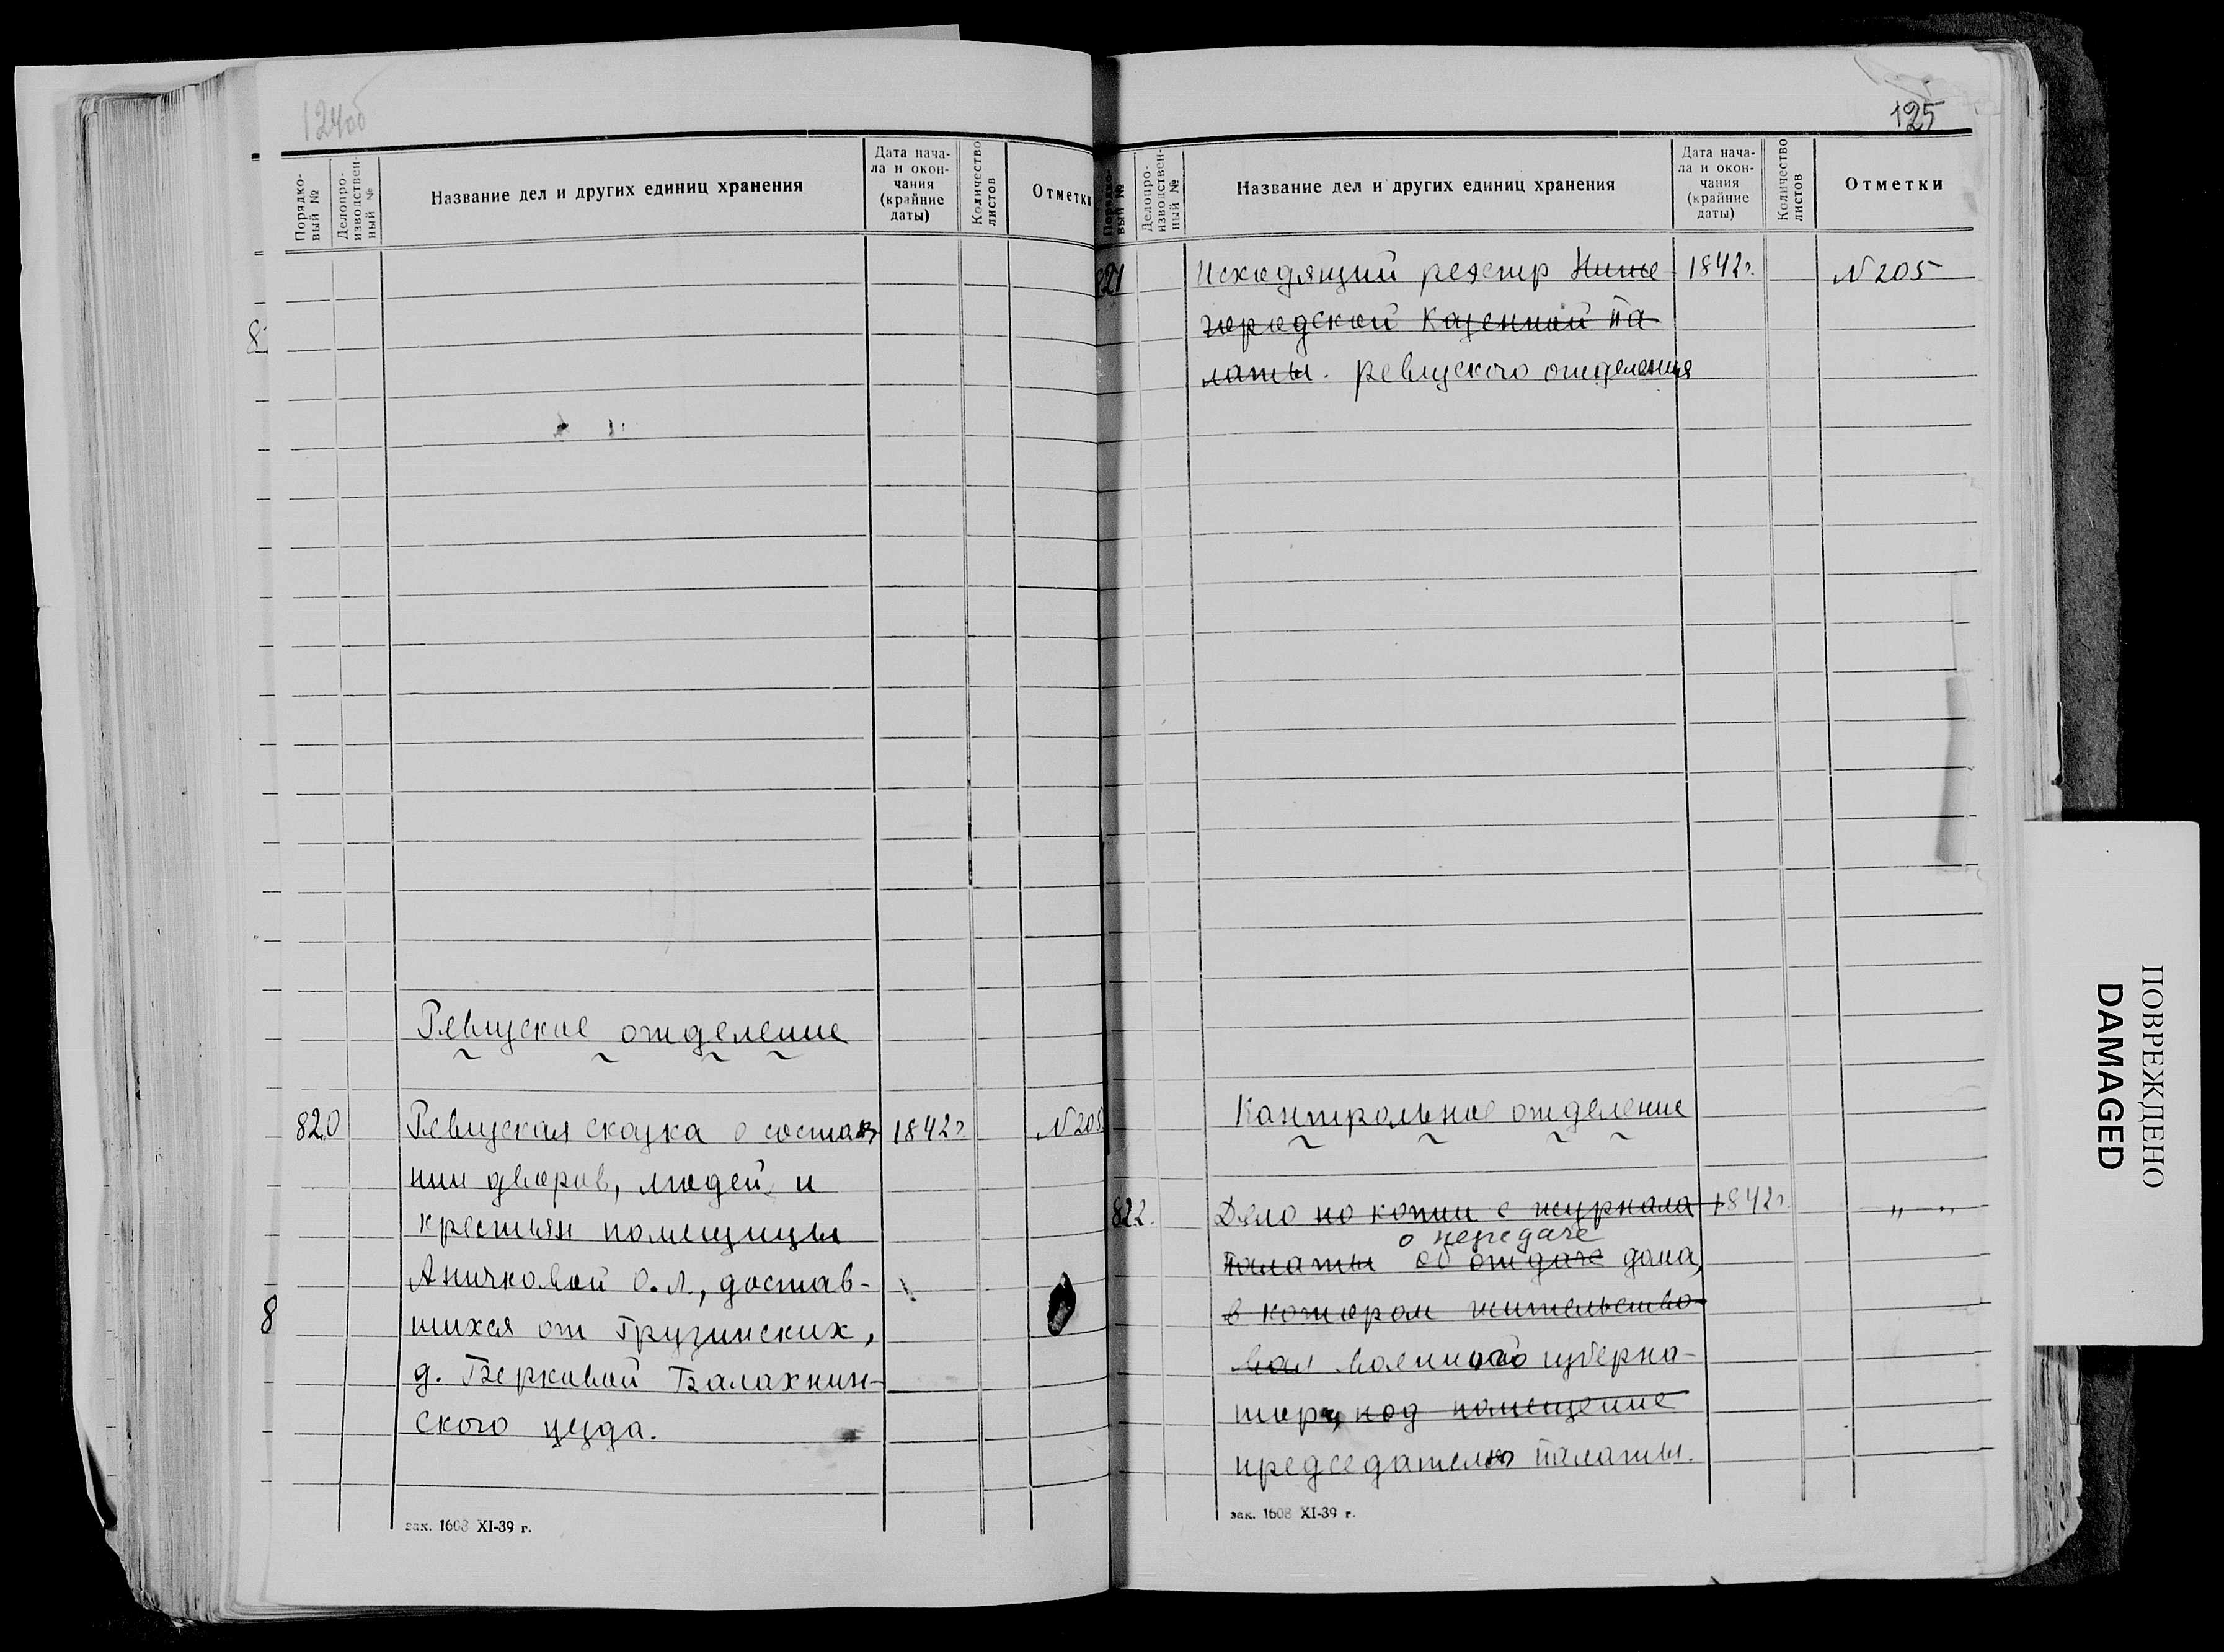 124об
Порядко-
вый №
Делопро-
изводствен-
ный №
Название дел и других единиц хранения
Дата нача-
ла и окон-
чания
(крайние
даты)
Количество
листов
Отметки
Ревизское отделение
820
Ревизская сказка о состоя-
1842г.
№ 205
нии дворов, людей и
крестьян помещицы
Аничковой О.Л., достав-
шихся от Грузинских,
д. Верковой Балахнин-
ского уезда.
зак. 1608 XI-39 г.
125
Порядко-
вый №
Делопро-
изводствен-
ный №
Название дел и других единиц хранения
Дата нача-
ла и окон-
чания
(крайние
даты)
Количество
листов
Отметки
821
Исходящий реестр Ниже-
1842г.
№ 205
городской Казенной Па-
латы. ревизского отделения
Контрольное отделение
822.
Дело по копии с журнала
1842г.
" "
о передаче
Палаты об отдаче дома,
в котором жительство-
вал военного губерна-
тора, под помещение
председателю палаты.
зак. 1608 XI-39 г.
ПОВРЕЖДЕНО
DAMAGED